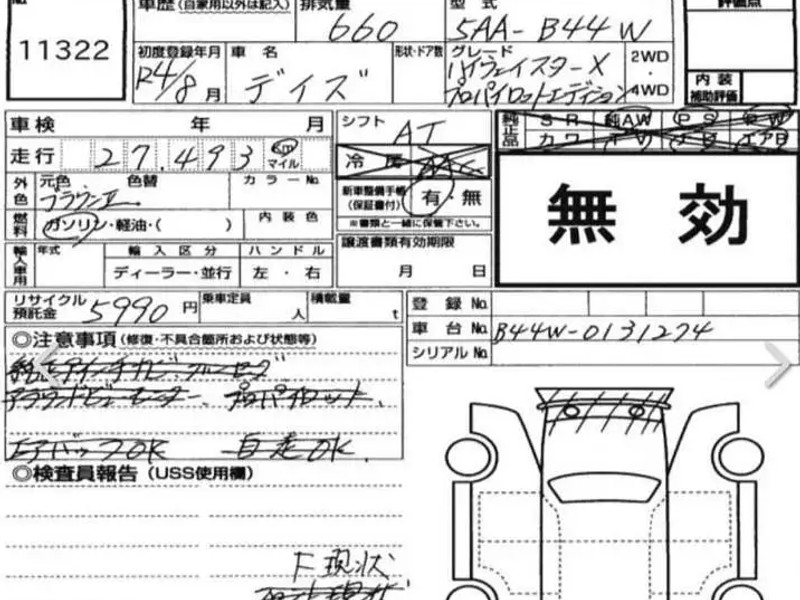 No.
11322
車歴(自家用以外は記入) 排気量 型式 評価点
660 5AA-B44W
初度登録年月 車名 形状・ドア数 グレード 2WD・4WD 内装補助評価
R4/8月 デイズ ハイウェイスターX
プロパイロットエディション
車検 年 月 シフト AT 純正品 SR 純AW PS PW
カワ TV ナビ エアB
走行 27,493 Km マイル 冷房 AAC
外色 元色 色替 カラーNo. 新車整備手帳(保証書付) 有・無
ブラウンII ※書類と一緒に保管下さい。
燃料 ガソリン・軽油・( ) 内装色 無効
輸入車用 年式 輸入区分 ハンドル 譲渡書類有効期限
ディーラー・並行 左・右 月 日
リサイクル預託金 5990円 乗車定員 人 積載量 t 登録No.
車台No. B44W-0131274
シリアルNo.
◎注意事項(修復・不具合箇所および状態等)
アラウンドビューモニター、プロパイロット、
エアバックOK 自走OK.
◎検査員報告(USS使用欄)
F現状